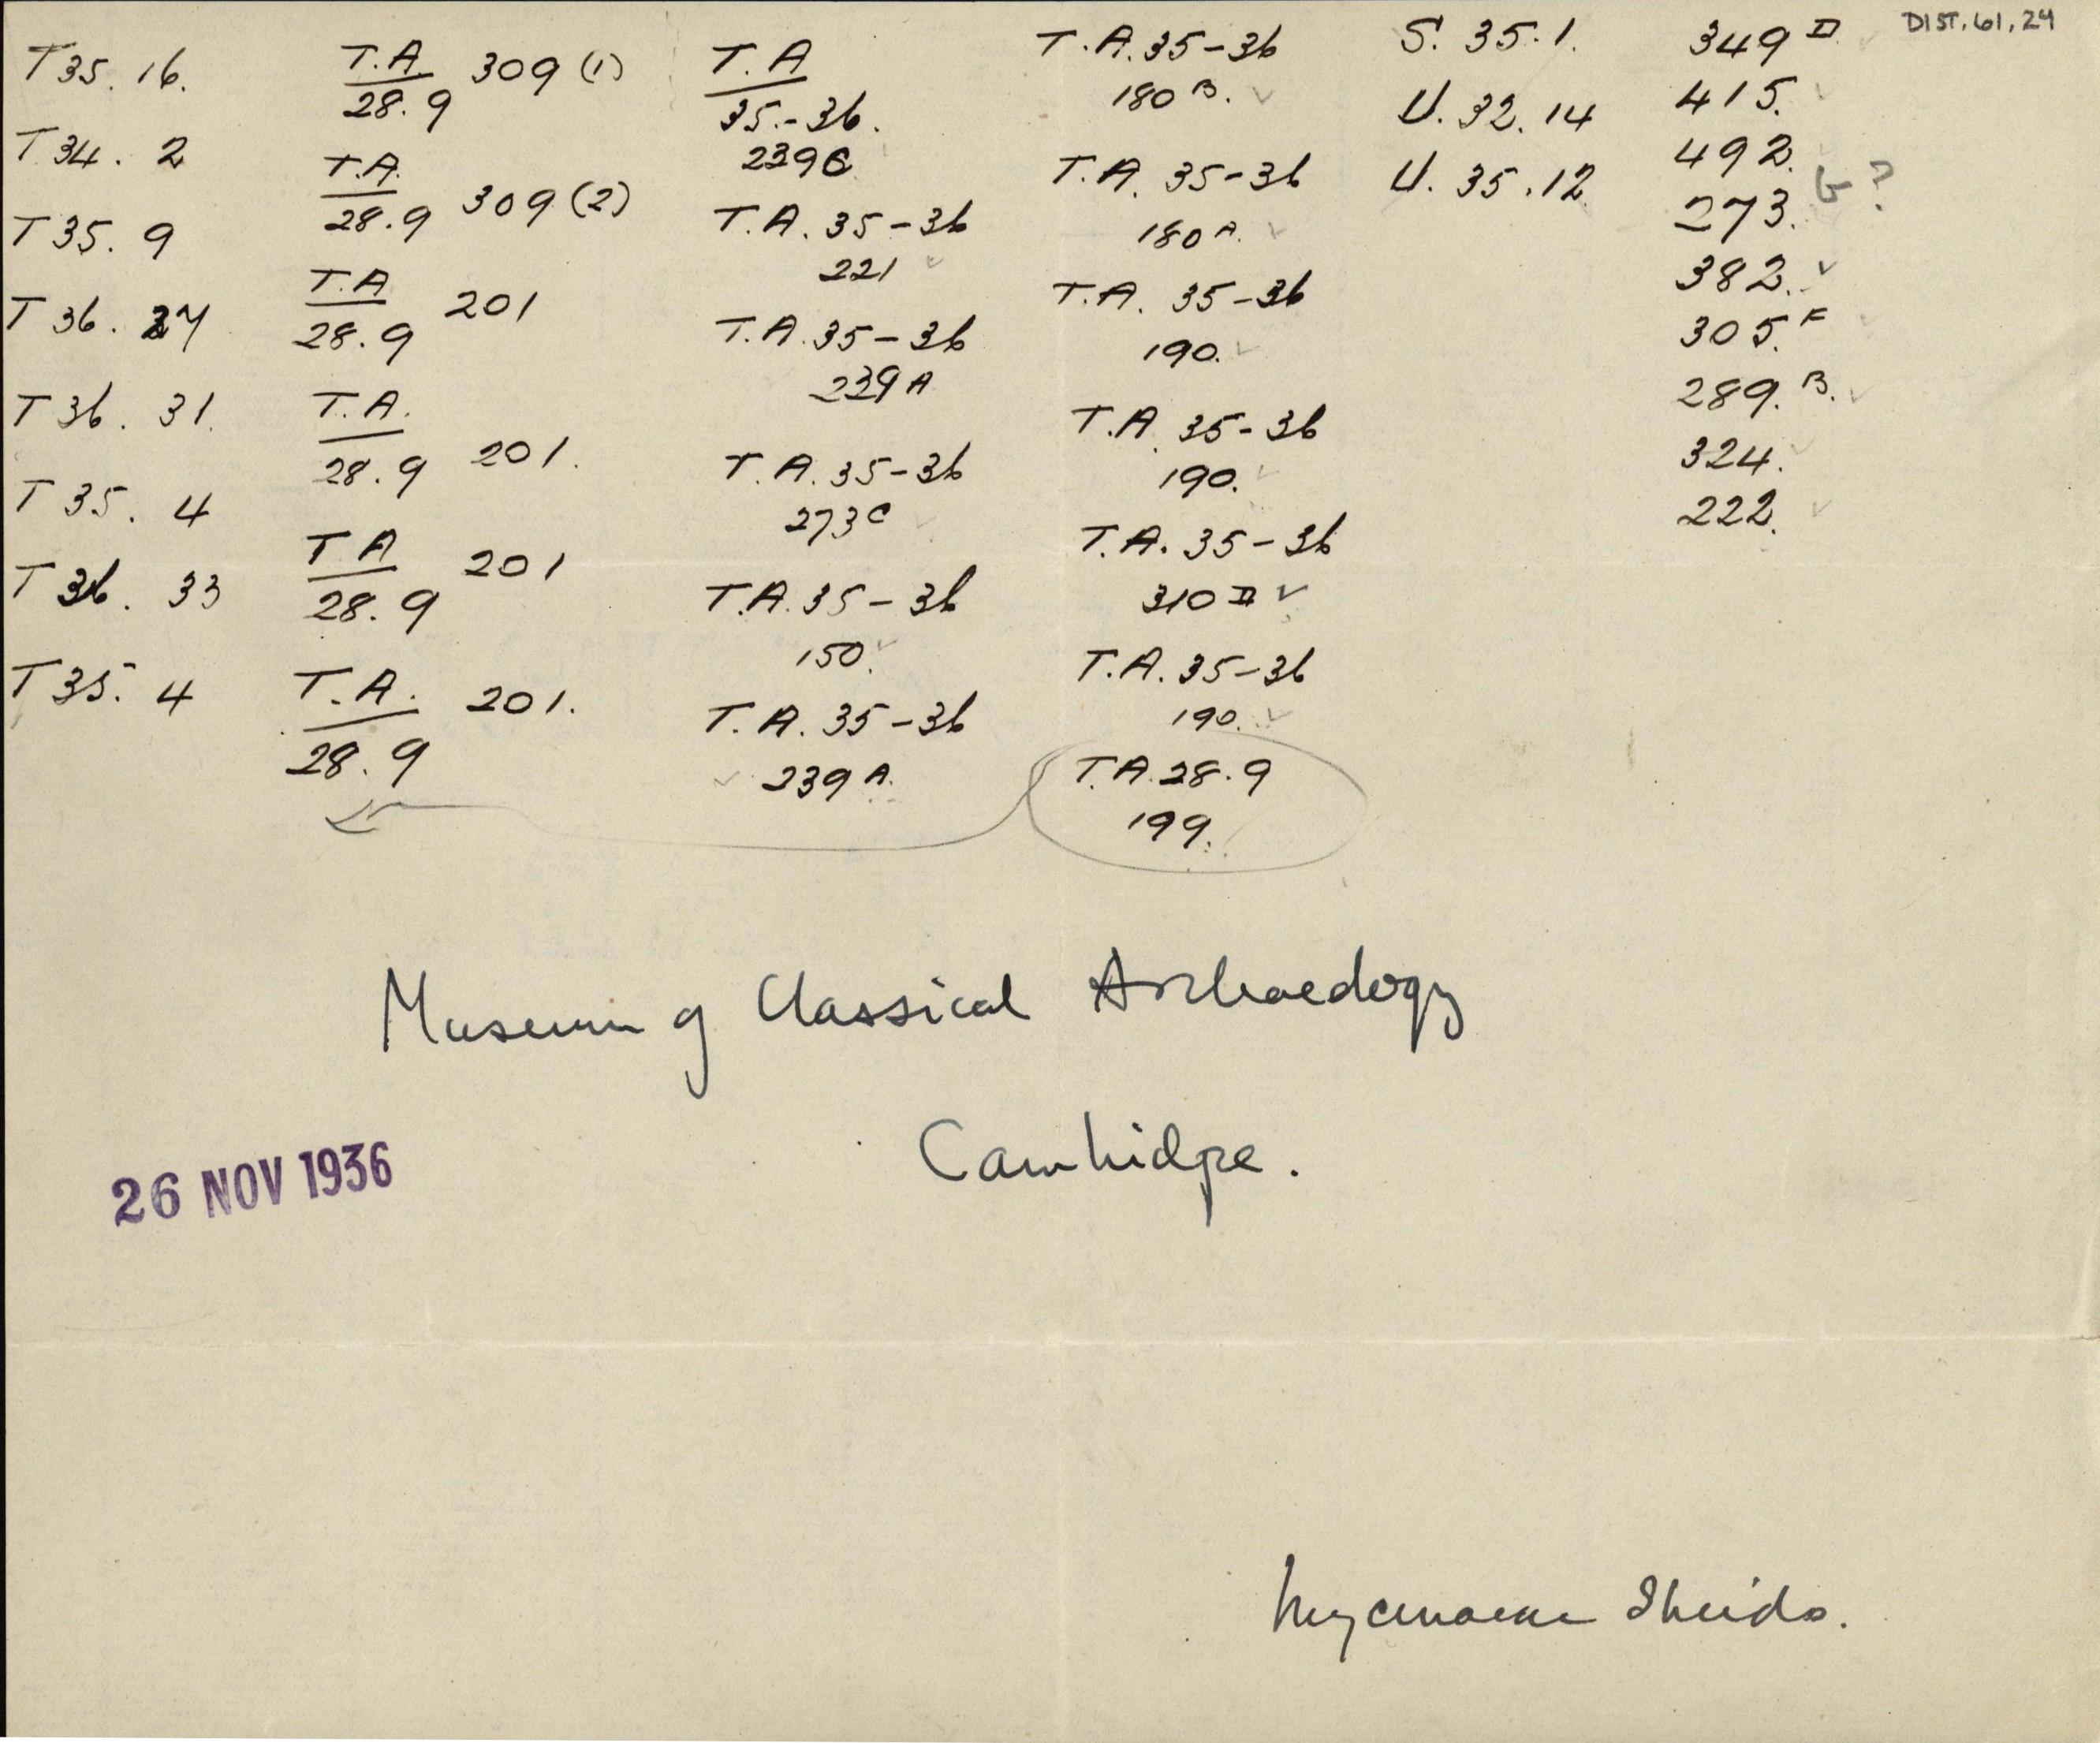 DIST.61.24
T 35. 16.
T 34. 2
T 35. 9
T 36. 27
T 36. 31.
T 35. 4
T 36. 33
T 35. 4
T.A. 309 (1)
28.9
T.A. 309 (2)
28.9
T.A 201
28.9
T.A. 201.
28.9
T A 201
28.9
T.A. 201.
28.9
T.A
35.-36.
239C
T.A. 35-36
221
T.A. 35-36
239 A
T.A. 35-36
273 C
T.A. 35-36
150.
T.A. 35-36
239 A.
T.A. 35-36
180 B.
T.A. 35-36
180 A.
T.A. 35-36
190.
T.A. 35-36
190.
T.A. 35-36
310 D
T.A. 35-36
190.
T.A. 28.9
199.
S. 35.1.
U. 32. 14
U. 35. 12
349 D
415.
492.
273. G ?
382.
305. F
289. B.
324.
222.
Museum of Classical Archaeology
Cambridge.
26 NOV 1936
Mycenaean Sherds.